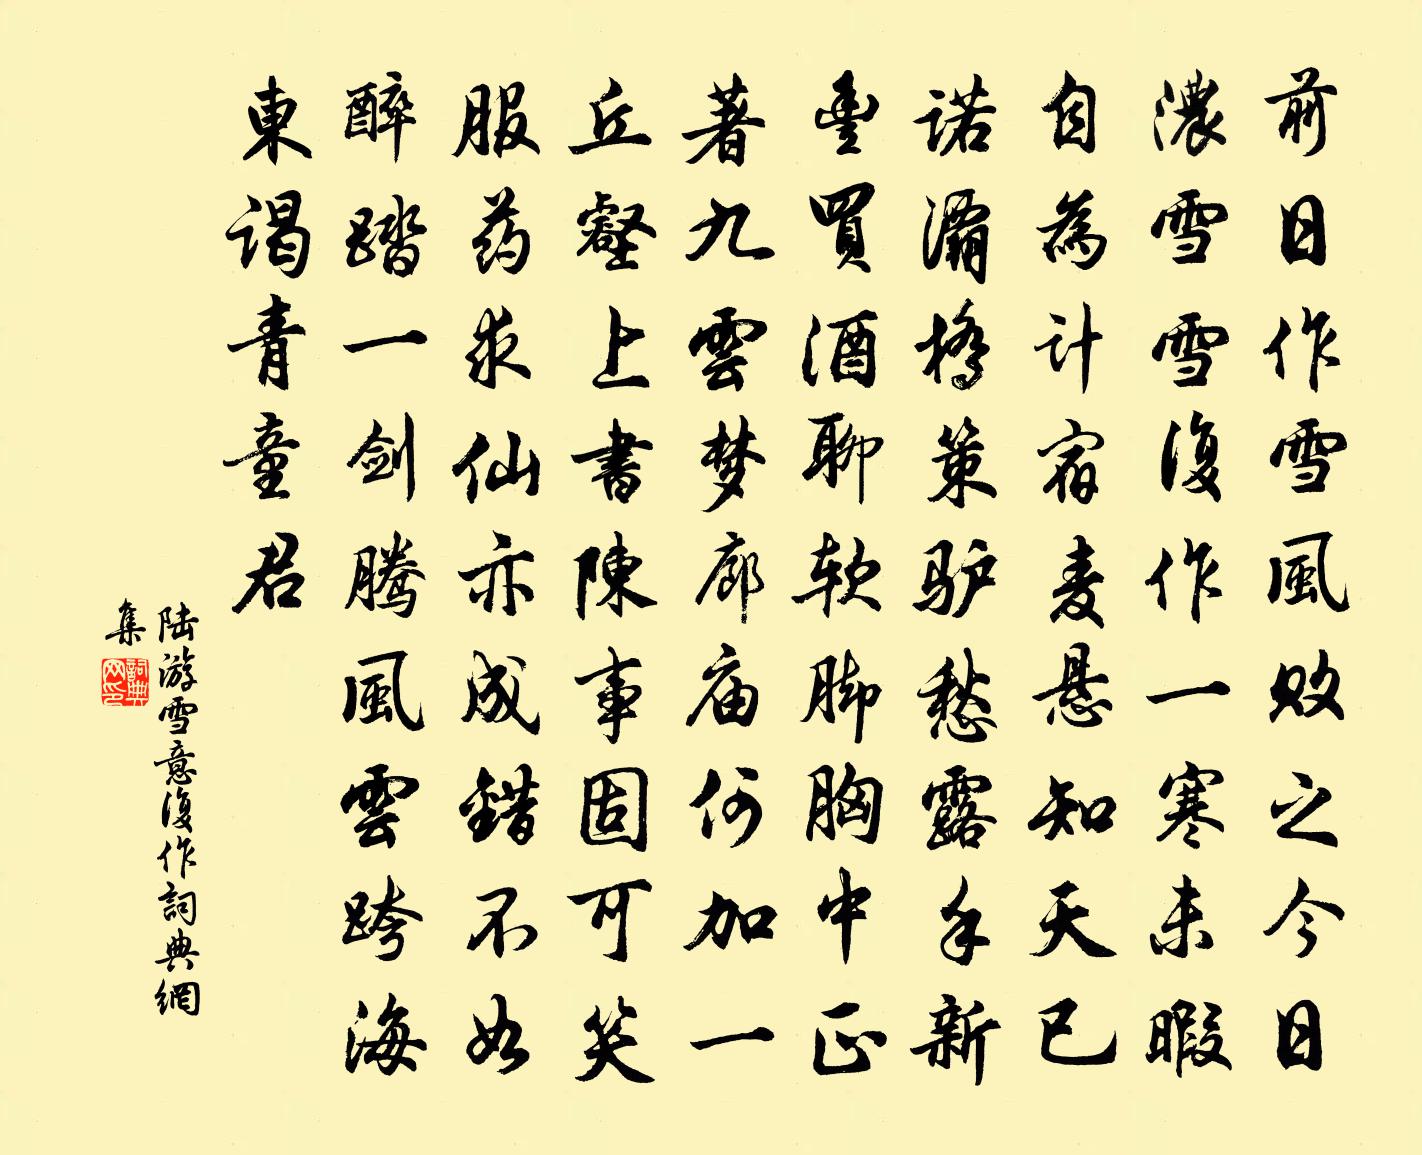 前日作雪風败之今日
濃雪雪復作一寒未暇
自為计宿麦悬知天已
诺灞橋策驴愁露手新
豐買酒聊软脚胸中正
著九雲梦廊庙何加一
丘壑上書陳事固可笑
服药求仙亦成錯不如
醉踏一剑騰風雲跨海
東谒青童君
陆游雪意復作詞典網
集
詞典
网印